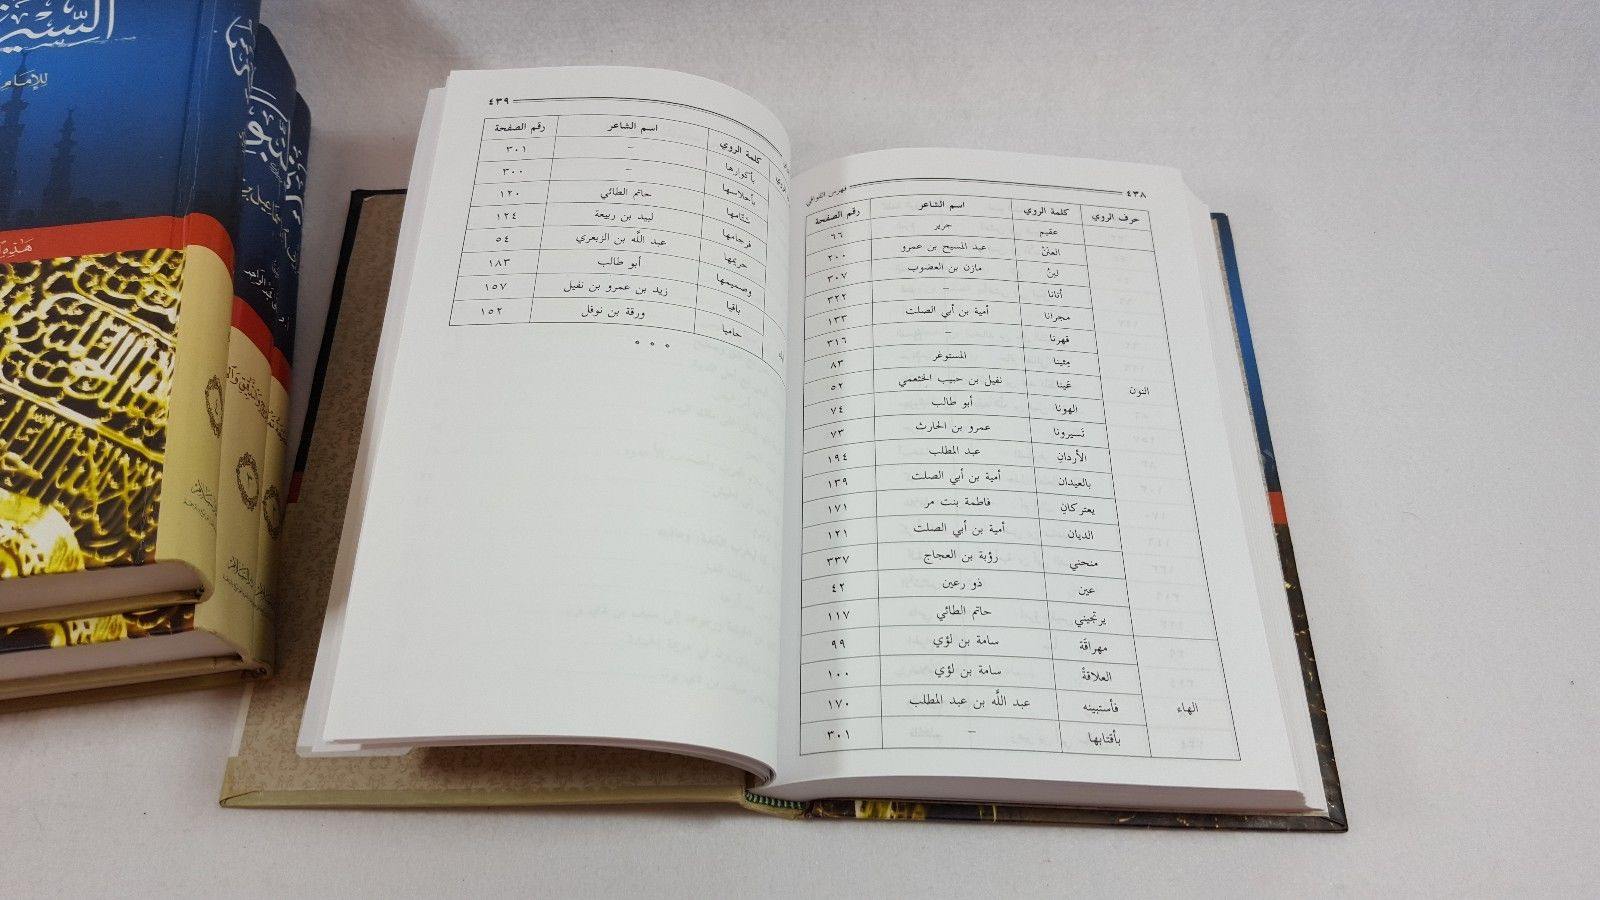 ٤٣٨ فهرس القوافي
حرف الروي كلمة الروي اسم الشاعر رقم الصفحة
عقيم جرير ٦٦
العننْ عبد المسيح بن عمرو ٢٠٠
لبنُ مازن بن العضوب ٣٠٧
أتانا – ٣٢٢
مجرانا أمية بن أبي الصلت ١٣٣
قهرنا – ٣١٦
مِئينا المستوغر ٨٣
النون عَينا نفيل بن حبيب الخثعمي ٥٢
الهونا أبو طالب ٧٤
تَسيرونا عمرو بن الحارث ٧٣
الأردانِ عبد المطلب ١٩٤
بالعيدان أمية بن أبي الصلت ١٣٩
يعتركانِ فاطمة بنت مر ١٧١
الديان أمية بن أبي الصلت ١٢١
منحني رؤبة بن العجاج ٣٣٧
عين ذو رعين ٤٢
يرتجيني حاتم الطائي ١١٧
مهراقَة سامة بن لؤي ٩٩
العلاقةْ سامة بن لؤي ١٠٠
الهاء فأستبينه عبد اللَّه بن عبد المطلب ١٧٠
بأقتابها – ٣٠١
٤٣٩
كلمة الروي اسم الشاعر رقم الصفحة
بأكوارها – ٣٠١
بأحلاسها – ٣٠٠
سَنَامها حاتم الطائي ١٢٠
فرجامها لبيد بن ربيعة ١٢٤
حريمها عبد اللَّه بن الزبعري ٥٤
وصميمها أبو طالب ١٨٣
باقيا زيد بن عمرو بن نفيل ١٥٧
حاميا ورقة بن نوفل ١٥٢
للإمام
هذه